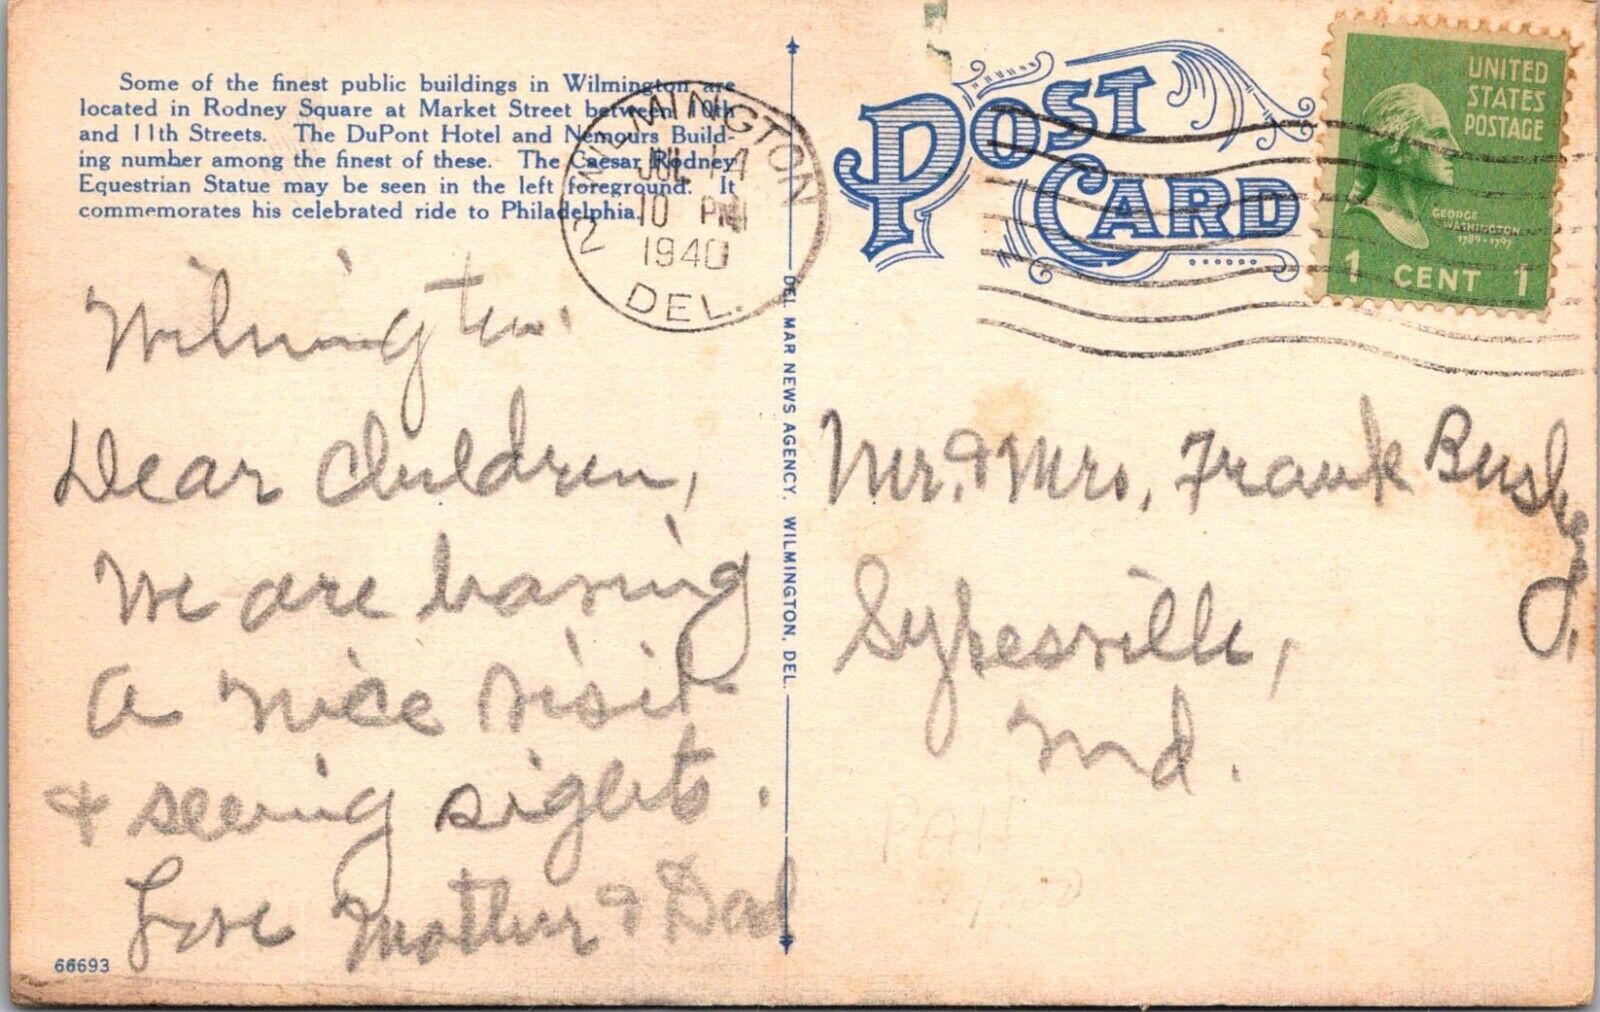 Some of the finest public buildings in Wilmington are
located in Rodney Square at Market Street between 10th
and 11th Streets. The DuPont Hotel and Nemours Build-
ing number among the finest of these. The Caesar Rodney
Equestrian Statue may be seen in the left foreground. It
commemorates his celebrated ride to Philadelphia.
WILMINGTON
2
JUL 14
10 PM
1940
DEL.
POST
CARD
UNITED
STATES
POSTAGE
GEORGE
WASHINGTON
1789-1797
1 CENT 1
Wilmington.
Dear Children,
We are having
a nice visit
& seeing sights.
Love Mother & Dad
66693
DEL MAR NEWS AGENCY, WILMINGTON, DEL.
Mr. & Mrs. Frank Bushey
Sykesville,
Md.
PAH
1.00